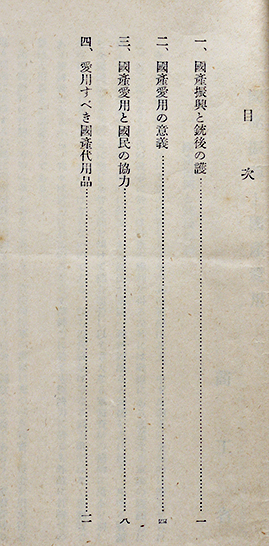 目次
一、國產振興と銃後の護……一
二、國產愛用の意義……四
三、國產愛用と國民の協力……八
四、愛用すべき國產代用品……一一